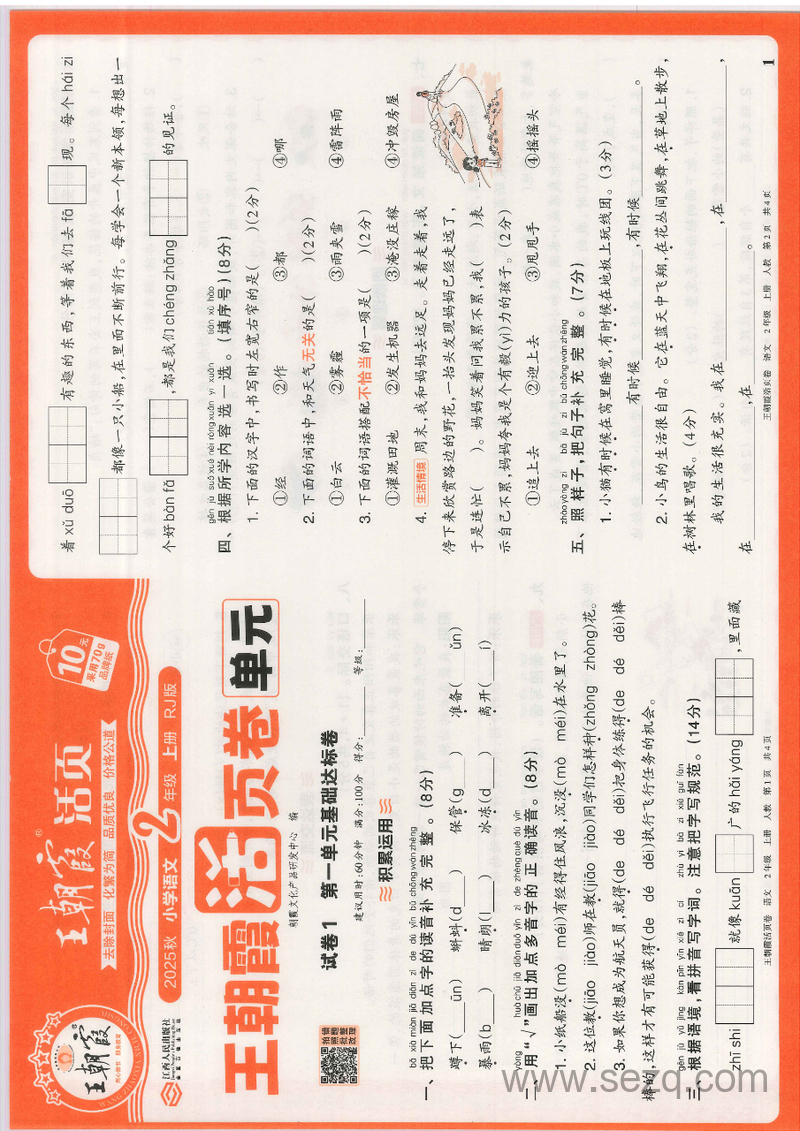 王朝霞® 活页
去除封面 化繁为简 品质优良 价格公道
10元
采用70g
品牌纸
王朝霞
江西人民出版社
2025秋 小学语文 2年级 上册 RJ版
王朝霞活页卷 单元
朝霞文化产品研发中心 编
试卷1 第一单元基础达标卷
建议用时:60分钟 满分:100分 得分:______ 等级:______
积累运用
bǎ xià miàn jiā diǎn zì de dú yīn bǔ chōng wán zhěng
一、把下面加点字的读音补充完整。(8分)
蹲下(___ūn) 蝌蚪(d___) 保管(g___) 准备(___ǔn)
暴雨(b___) 晴朗(l___) 冰冻(d___) 离开(___í)
yòng huà chū jiā diǎn duō yīn zì de zhèng què dú yīn
二、用“√”画出加点多音字的正确读音。(8分)
1. 小纸船没(mò méi)有经得住风浪,沉没(mò méi)在水里了。
2. 这位教(jiāo jiào)师在教(jiāo jiào)同学们怎样种(zhǒng zhòng)花。
3. 如果你想成为航天员,就得(de dé děi)把身体练得(de dé děi)棒
棒的,这样才有可能获得(de dé děi)执行飞行任务的机会。
gēn jù yǔ jìng kàn pīn yīn xiě zì cí zhù yì bǎ zì xiě guī fàn
三、根据语境,看拼音写字词。注意把字写规范。(14分)
zhī shi 就像 kuān 广的 hǎi yáng ,里面藏
王朝霞活页卷 语文 2年级 上册 人教 第1页 共4页
着 xǔ duō 有趣的东西,等着我们去 fā 现。每个 hái zi
都像一只小船,在里面不断前行。每学会一个新本领,每想出一
个好 bàn fǎ ,都是我们 chéng zhǎng 的见证。
gēn jù suǒ xué nèi róng xuǎn yi xuǎn tián xù hào
四、根据所学内容选一选。(填序号)(8分)
1. 下面的汉字中,书写时左宽右窄的是( )(2分)
①经 ②作 ③都 ④哪
2. 下面的词语中,和天气无关的是( )(2分)
①白云 ②雾霾 ③雨夹雪 ④雷阵雨
3. 下面的词语搭配不恰当的一项是( )(2分)
①灌溉田地 ②发生机器 ③淹没庄稼 ④冲毁房屋
4. 生活情境 周末,我和妈妈去远足。走着走着,我
停下来欣赏路边的野花,一抬头发现妈妈已经走远了,
于是连忙( )。妈妈笑着问我累不累,我( )表
示自己不累,妈妈夸我是个有毅(yì)力的孩子。(2分)
①追上去 ②迎上去 ③甩甩手 ④摇摇头
zhào yàng zi bǎ jù zi bǔ chōng wán zhěng
五、照样子,把句子补充完整。(7分)
1. 小猫有时候在窝里睡觉,有时候在地板上玩线团。(3分)
______有时候______,有时候______。
2. 小鸟的生活很自由。它在蓝天中飞翔,在花丛间跳舞,在草地上散步,
在树林里唱歌。(4分)
我的生活很充实。我在______,在______,
在______,在______。
王朝霞活页卷 语文 2年级 上册 人教 第2页 共4页
1
www.sezq.com